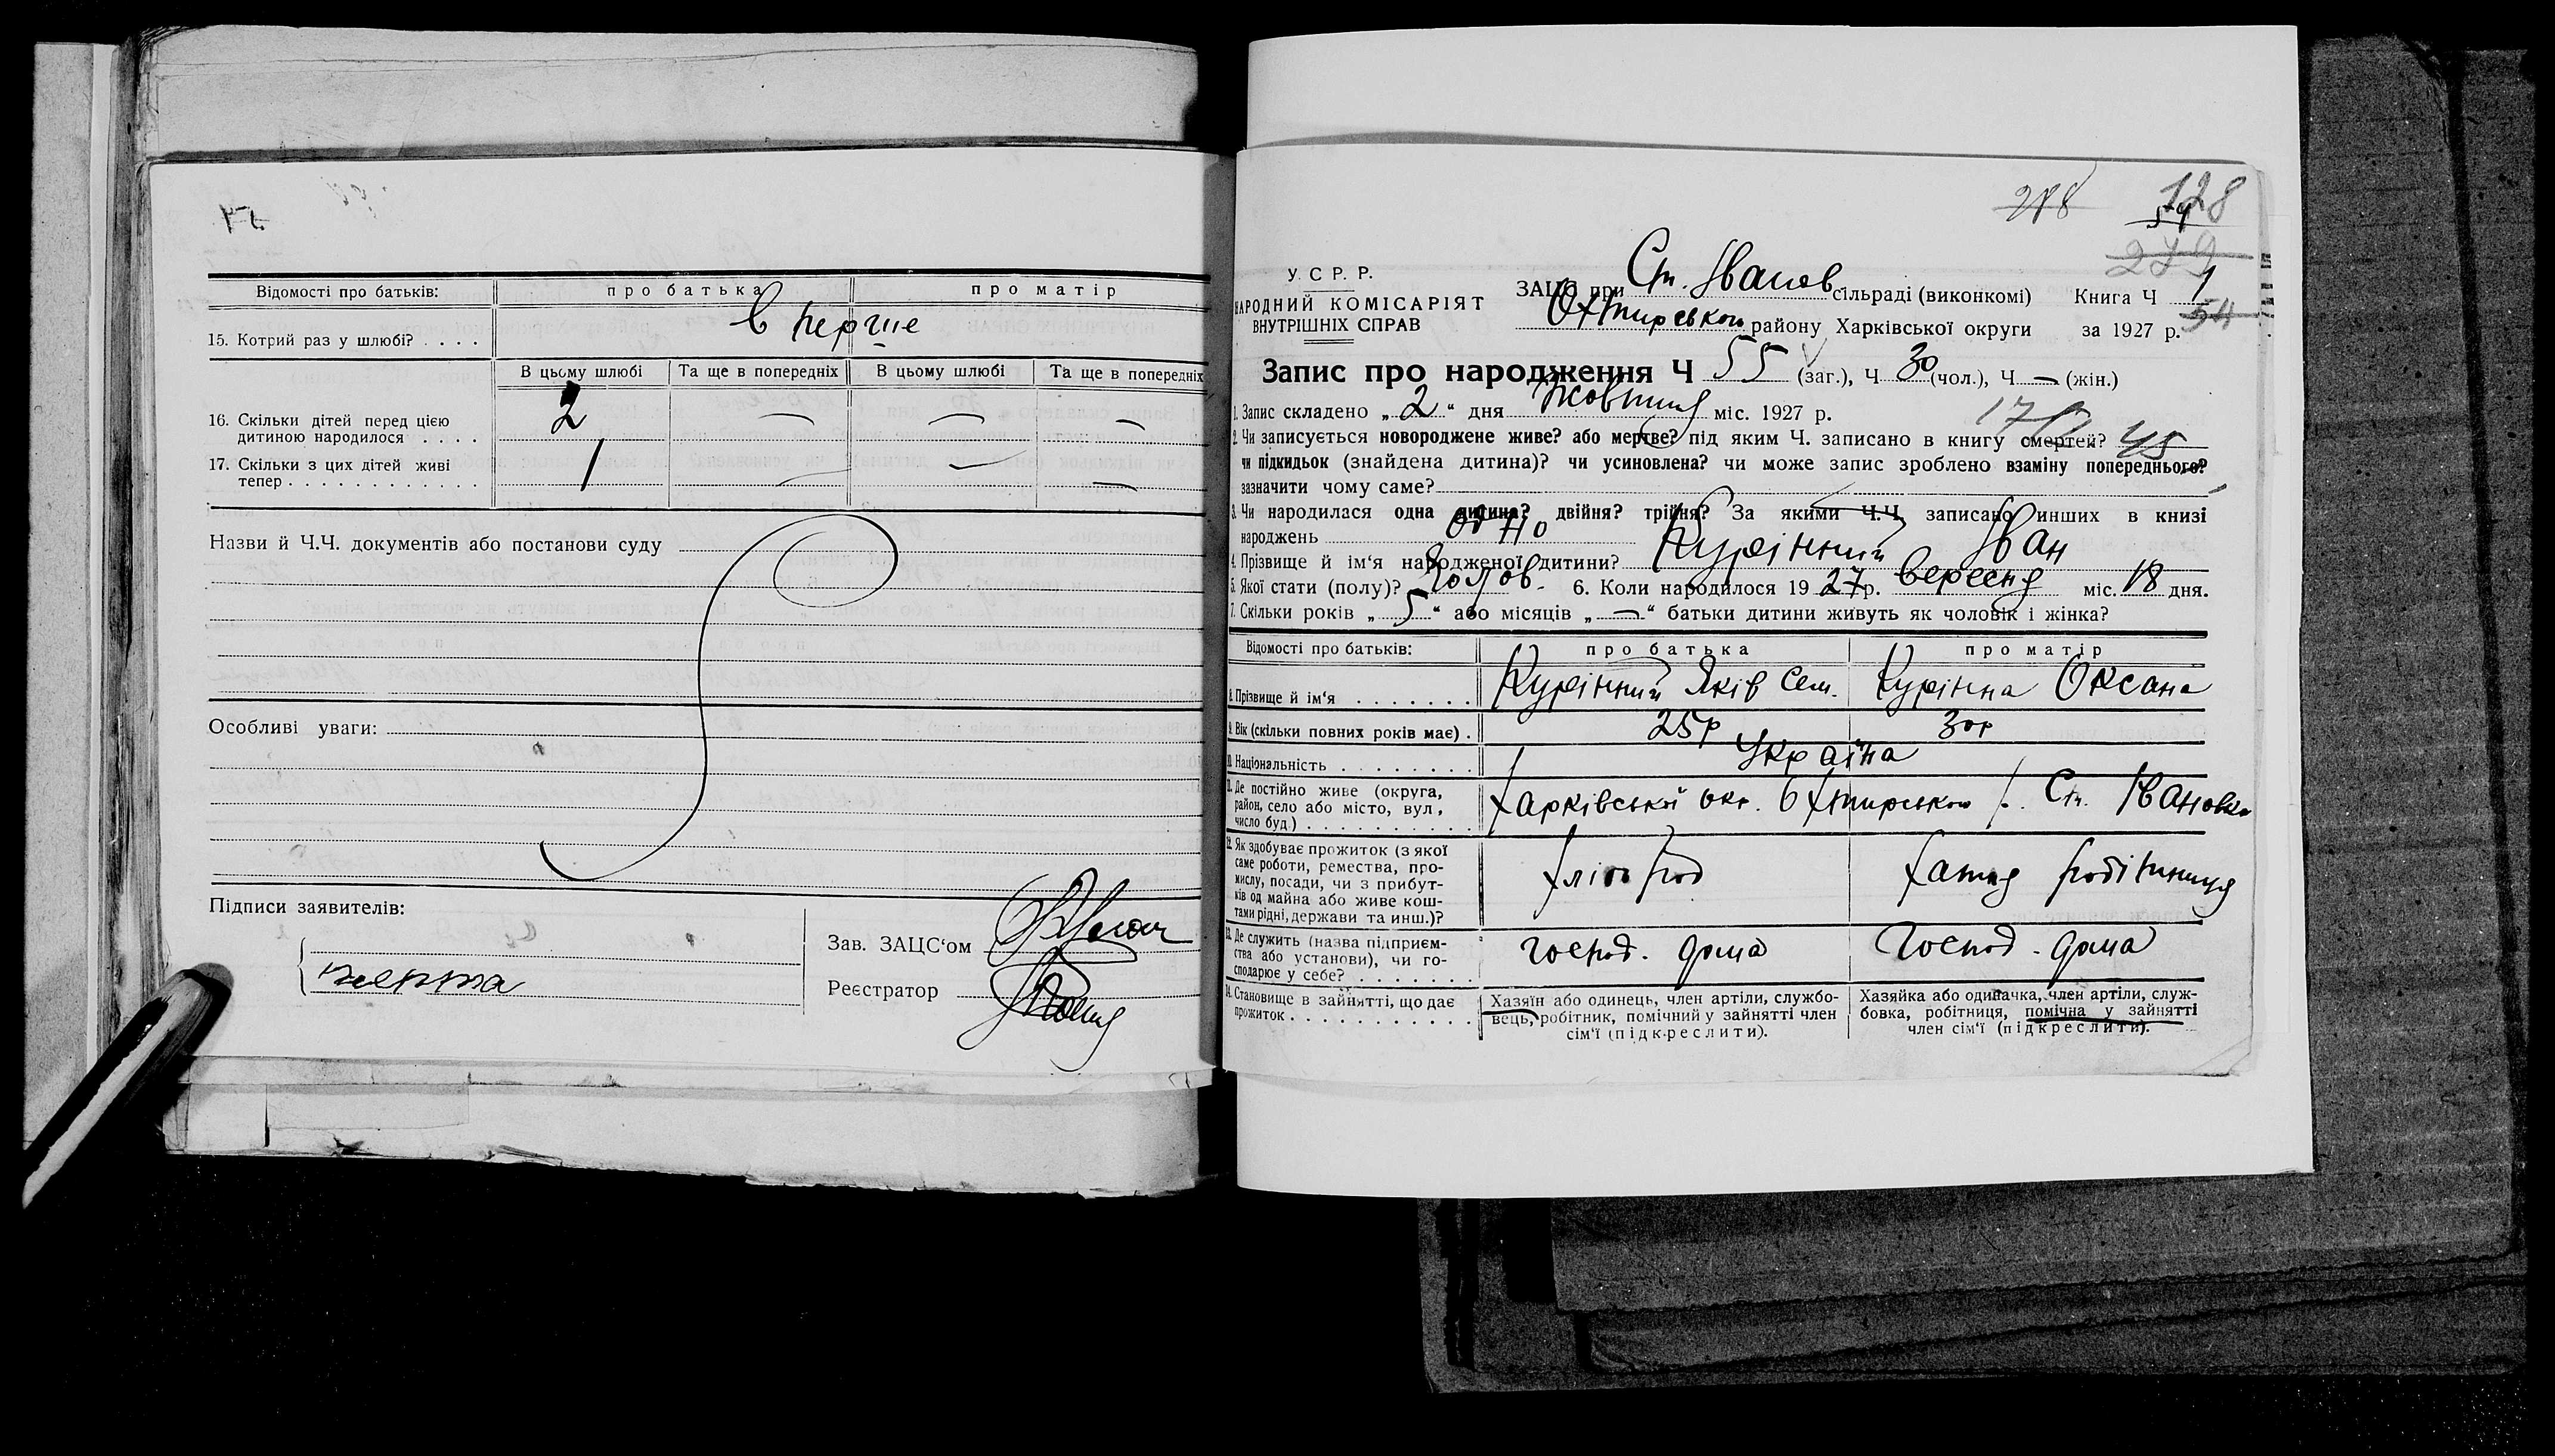 Відомості про батьків: про батька про матір
15. Котрий раз у шлюбі? . . . . в перше
В цьому шлюбі Та ще в попередніх В цьому шлюбі Та ще в попередніх
16. Скільки дітей перед цією
дитиною народилося . . . . 2 — — —
17. Скільки з цих дітей живі
тепер . . . . . . . . . . . . 1 — — —
Назви й Ч.Ч. документів або постанови суду
Особливі уваги:
Підписи заявителів:
Зав. ЗАЦС‘ом
Реєстратор
218 128
54
279
У. С Р. Р.
НАРОДНИЙ КОМІСАРІЯТ
ВНУТРІШНІХ СПРАВ
ЗАЦС при Ст. Іванов. сільраді (виконкомі) Книга Ч 1
54
Охтирського району Харківської округи за 1927 р.
Запис про народження Ч 55 (заг.), Ч 30 (чол.), Ч — (жін.)
1. Запис складено „ 2 “ дня Жовтня міс. 1927 р.
2. Чи записується новороджене живе? або мертве? під яким Ч. записано в книгу смертей? 45
чи підкидьок (знайдена дитина)? чи усиновлена? чи може запис зроблено взаміну попереднього?
зазначити чому саме?
3. Чи народилася одна дитина? двійня? трійня? За якими Ч.Ч. записано инших в книзі
народжень одно
4. Прізвище й ім‘я народженої дитини? Курінний Іван
5. Якої стати (полу)? Чолов. 6. Коли народилося 19 27 р. вересня міс. 18 дня.
7. Скільки років „ 5 “ або місяців „ — “ батьки дитини живуть як чоловік і жінка?
Відомості про батьків: про батька про матір
8. Прізвище й ім‘я . . . . . . . Курінний Яків Сем. Курінна Оксана
9. Вік (скільки повних років має) . 25р 30р
10. Національність . . . . . . . . Україна
11. Де постійно живе (округа,
район, село або місто, вул.,
число буд.) . . . . . . . . . . Харківської окр. Охтирського р. Ст. Івановка
12. Як здобуває прожиток (з якої
саме роботи, ремества, про-
мислу, посади, чи з прибут-
ків од майна або живе кош-
тами рідні, держави та инш.)? хлібороб хатня робітниця
13. Де служить (назва підприєм-
ства або установи), чи го-
сподарює у себе? . . . . . . . господ. дома господ. дома
14. Становище в зайнятті, що дає
прожиток . . . . . . . . . . .
Хазяїн або одинець, член артіли, службо-
вець, робітник, помічний у зайнятті член
сім‘ї (підкреслити).
Хазяйка або одиначка, член артіли, служ-
бовка, робітниця, помічна у зайнятті
член сім‘ї (підкреслити).